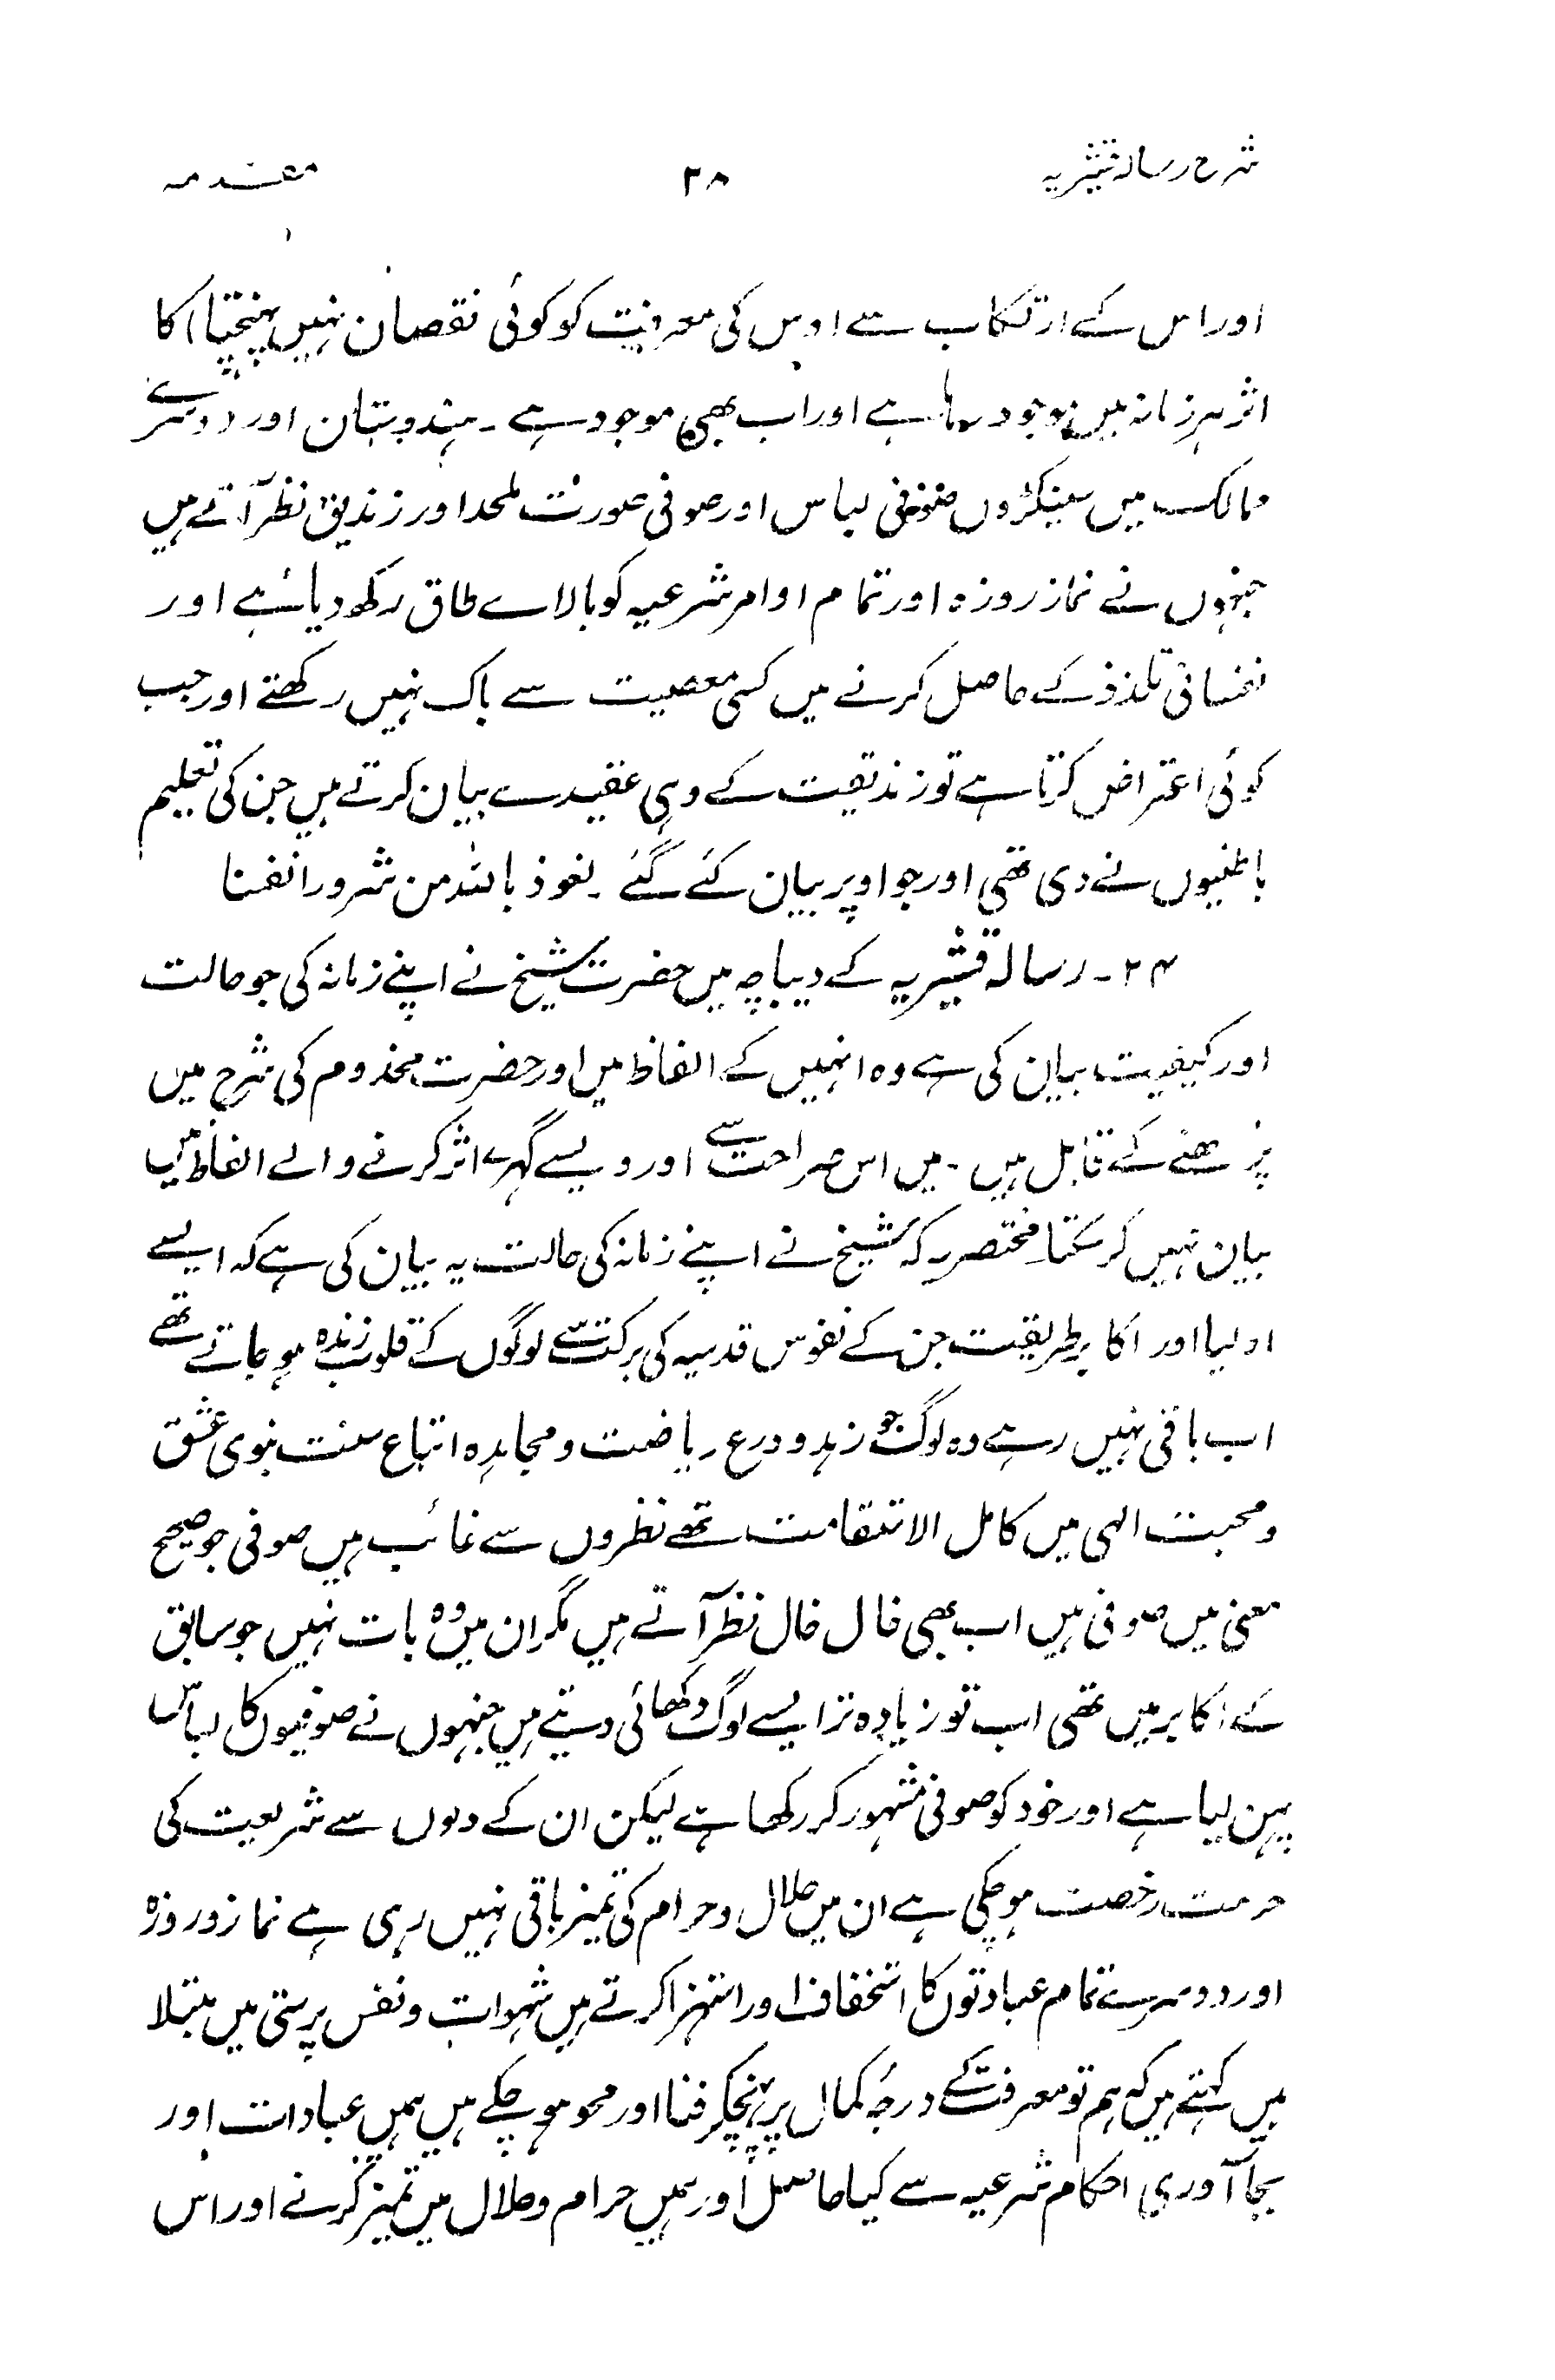 شرح رسالہ قشیریہ ۳۸ مقدمہ
اور اس کے ارتکاب سے اوس کی معرفت کو کوئی نقصان نہیں پہنچتا اکا
اثر ہر زمانہ میں موجود رہا ہے اور اب بھی موجود ہے ۔ ہندوستان اور دوسرے
ممالک میں سینکڑوں صوفی لباس اور صوفی صورت ملحد اور زندیق نظر آتے ہیں
جنہوں نے نماز روزہ اور تمام اوامر شرعیہ کو بالاے طاق رکھ دیا ہے اور
نفسانی تلذذ کے حاصل کرنے میں کسی معصیت سے باک نہیں رکھتے اور جب
کوئی اعتراض کرتا ہے تو زندیقیت کے وہی عقیدے بیان کرتے ہیں جن کی تعلیم
باطنیوں نے دی تھی اور جو اوپر بیان کئے گئے ۔ نعوذ باللہ من شرور انفسنا
۲۴ ۔ رسالہ قشیریہ کے دیباچہ میں حضرت شیخ نے اپنے زمانہ کی جو حالت
اور کیفیت بیان کی ہے وہ انہیں کے الفاظ میں اور حضرت مخدوم کی شرح میں
پڑھنے کے قابل ہیں ۔ میں اس صراحت سے اور ویسے گہرے اثر کرنے والے الفاظ میں
بیان نہیں کر سکتا مختصر یہ کہ شیخ نے اپنے زمانہ کی حالت یہ بیان کی ہے کہ ایسے
اولیا اور اکابر طریقت جن کے نفوس قدسیہ کی برکت سے لوگوں کے قلوب زندہ ہو جاتے تھے
اب باقی نہیں رہے وہ لوگ جو زہد و ورع ریاضت و مجاہدہ اتباع سنت نبوی عشق
و محبت الہی میں کامل الاستقامت تھے نظروں سے غائب ہیں صوفی جو صحیح
معنی میں صوفی ہیں اب بھی خال خال نظر آتے ہیں مگر ان میں وہ بات نہیں جو سابق
کے اکابر میں تھی اب تو زیادہ تر ایسے لوگ دکھائی دیتے ہیں جنہوں نے صوفیوں کا لباس
پہن لیا ہے اور خود کو صوفی مشہور کر رکھا ہے لیکن ان کے دلوں سے شریعت کی
حرمت رخصت ہو چکی ہے ان میں حلال و حرام کی تمیز باقی نہیں رہی ہے نماز و روزہ
اور دوسرے تمام عبادتوں کا استخفاف اور استہزا کرتے ہیں شہوات و نفس پرستی میں مبتلا
ہیں کہتے ہیں کہ ہم تو معرفت کے درجۂ کمال پر پہنچکر فنا اور محو ہو چکے ہیں ہمیں عبادات اور
بجا آوری احکام شرعیہ سے کیا حاصل اور ہمیں حرام و حلال میں تمیز کرنے اور اس